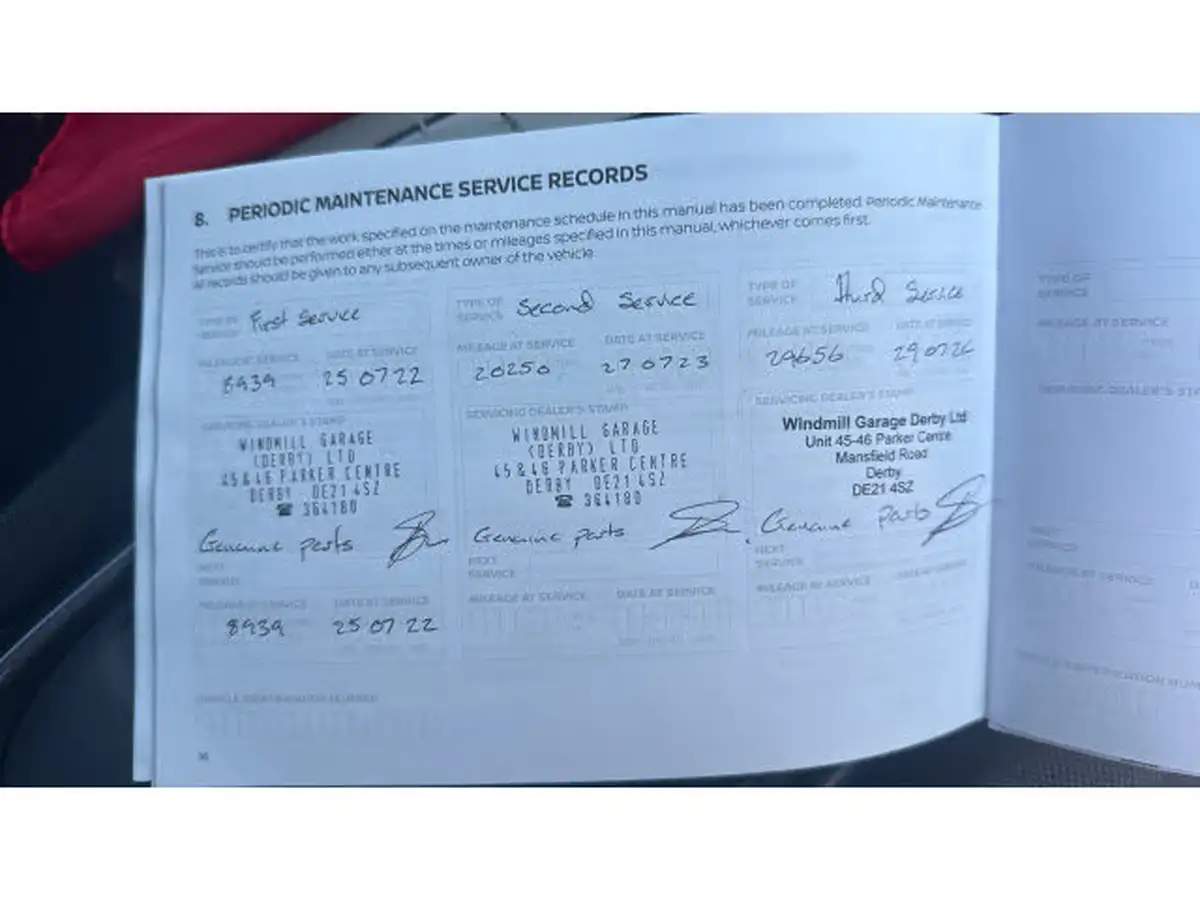 8. PERIODIC MAINTENANCE SERVICE RECORDS
This is to certify that the work specified on the maintenance schedule in this manual has been completed. Periodic Maintenance
Service should be performed either at the times or mileages specified in this manual, whichever comes first.
All records should be given to any subsequent owner of the vehicle.
TYPE OF SERVICE First Service
MILEAGE AT SERVICE DATE AT SERVICE
8939 25 07 22
SERVICING DEALER'S STAMP
WINDMILL GARAGE
(DERBY) LTD
45 & 46 PARKER CENTRE
DERBY DE21 4SZ
☎ 364180
Genuine parts
NEXT SERVICE
MILEAGE AT SERVICE DATE AT SERVICE
8939 25 07 22
VEHICLE IDENTIFICATION NUMBER
16
TYPE OF SERVICE Second Service
MILEAGE AT SERVICE DATE AT SERVICE
20250 27 07 23
SERVICING DEALER'S STAMP
WINDMILL GARAGE
(DERBY) LTD
45 & 46 PARKER CENTRE
DERBY DE21 4SZ
☎ 364180
Genuine parts
NEXT SERVICE
MILEAGE AT SERVICE DATE AT SERVICE
TYPE OF SERVICE Third Service
MILEAGE AT SERVICE DATE AT SERVICE
29656
SERVICING DEALER'S STAMP
Windmill Garage Derby Ltd
Unit 45-46 Parker Centre
Mansfield Road
Derby
DE21 4SZ
Genuine parts
NEXT SERVICE
MILEAGE AT SERVICE DATE AT SERVICE
TYPE OF SERVICE
MILEAGE AT SERVICE
SERVICING DEALER'S
NEXT SERVICE
MILEAGE AT SERVICE